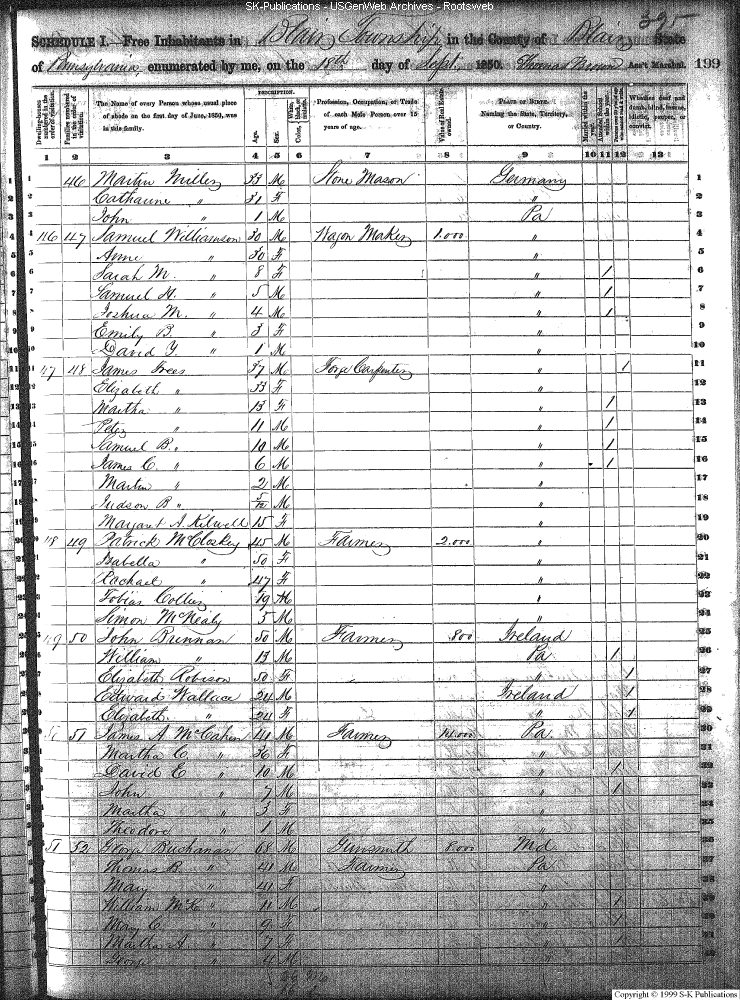 SK-Publications - USGenWeb Archives - Rootsweb
395
SCHEDULE I.—Free Inhabitants in Blair Township in the County of Blair State
of Pennsylvania, enumerated by me, on the 18th day of Sept. 1850. Thomas Ass't Marshal. 199
DESCRIPTION.
Dwelling-houses numbered in the order of visitation. Families numbered in the order of visitation. The Name of every Person whose usual place of abode on the first day of June, 1850, was in this family. Age. Sex. Color, White, black, or mulatto. Profession, Occupation, or Trade of each Male Person over 15 years of age. Value of Real Estate owned. PLACE OF BIRTH. Naming the State, Territory, or Country. Married within the year. Attended School within the year. Whether deaf and dumb, blind, insane, idiotic, pauper, or convict.
1 2 3 4 5 6 7 8 9 10 11 12 13
1 46 Martin Miller 33 M Stone Mason Germany 1
2 Catharine " 31 F " 2
3 John " 1 M Pa 3
4 46 47 Samuel Williamson 30 M Wagon Maker 1.000 " 4
5 Anne " 30 F " 5
6 Sarah M. " 8 F " / 6
7 Samuel H. " 5 M " / 7
8 Joshua M. " 4 M " / 8
9 Emily B. " 3 F " 9
10 David Y. " 1 M " 10
11 47 48 James Trees 37 M Forge Carpenter " / 11
12 Elizabeth " 33 F " 12
13 Martha " 13 F " / 13
14 Peter " 11 M " / 14
15 Samuel B. " 10 M " / 15
16 James C. " 6 M " / 16
17 Martin " 2 M " 17
18 Judson B " 5/12 M " 18
19 Margaret A. Kilwell 15 F " 19
20 48 49 Patrick McCloskey 45 M Farmer 2.000 " 20
21 Isabella " 50 F " 21
22 Rachael " 47 F " 22
23 Tobias Collier 19 M " 23
24 Simon McNealy 5 M " 24
25 49 50 John Brennan 50 M Farmer 800 Ireland 25
26 William " 13 M Pa / 26
27 Elizabeth Robison 50 F " / 27
28 Edward Wallace 24 M Ireland / 28
29 Elizabeth " 24 F " / 29
30 50 51 James A McCahen 41 M Farmer Pa 30
31 Martha C. " 36 F " 31
32 David C " 10 M " / 32
33 John " 7 M " / 33
34 Martha " 3 F " 34
35 Theodore " 1 M " 35
36 51 52 George Buchanan 68 M Gunsmith 8.000 Md 36
37 Thomas B. " 41 M Farmer Pa 37
38 Mary " 41 F " 38
39 William McK " 11 M " / 39
40 Mary C. " 9 F " / 40
41 Martha A. " 7 F " / 41
42 George " 4 M " 42
Copyright © 1999 S-K Publications